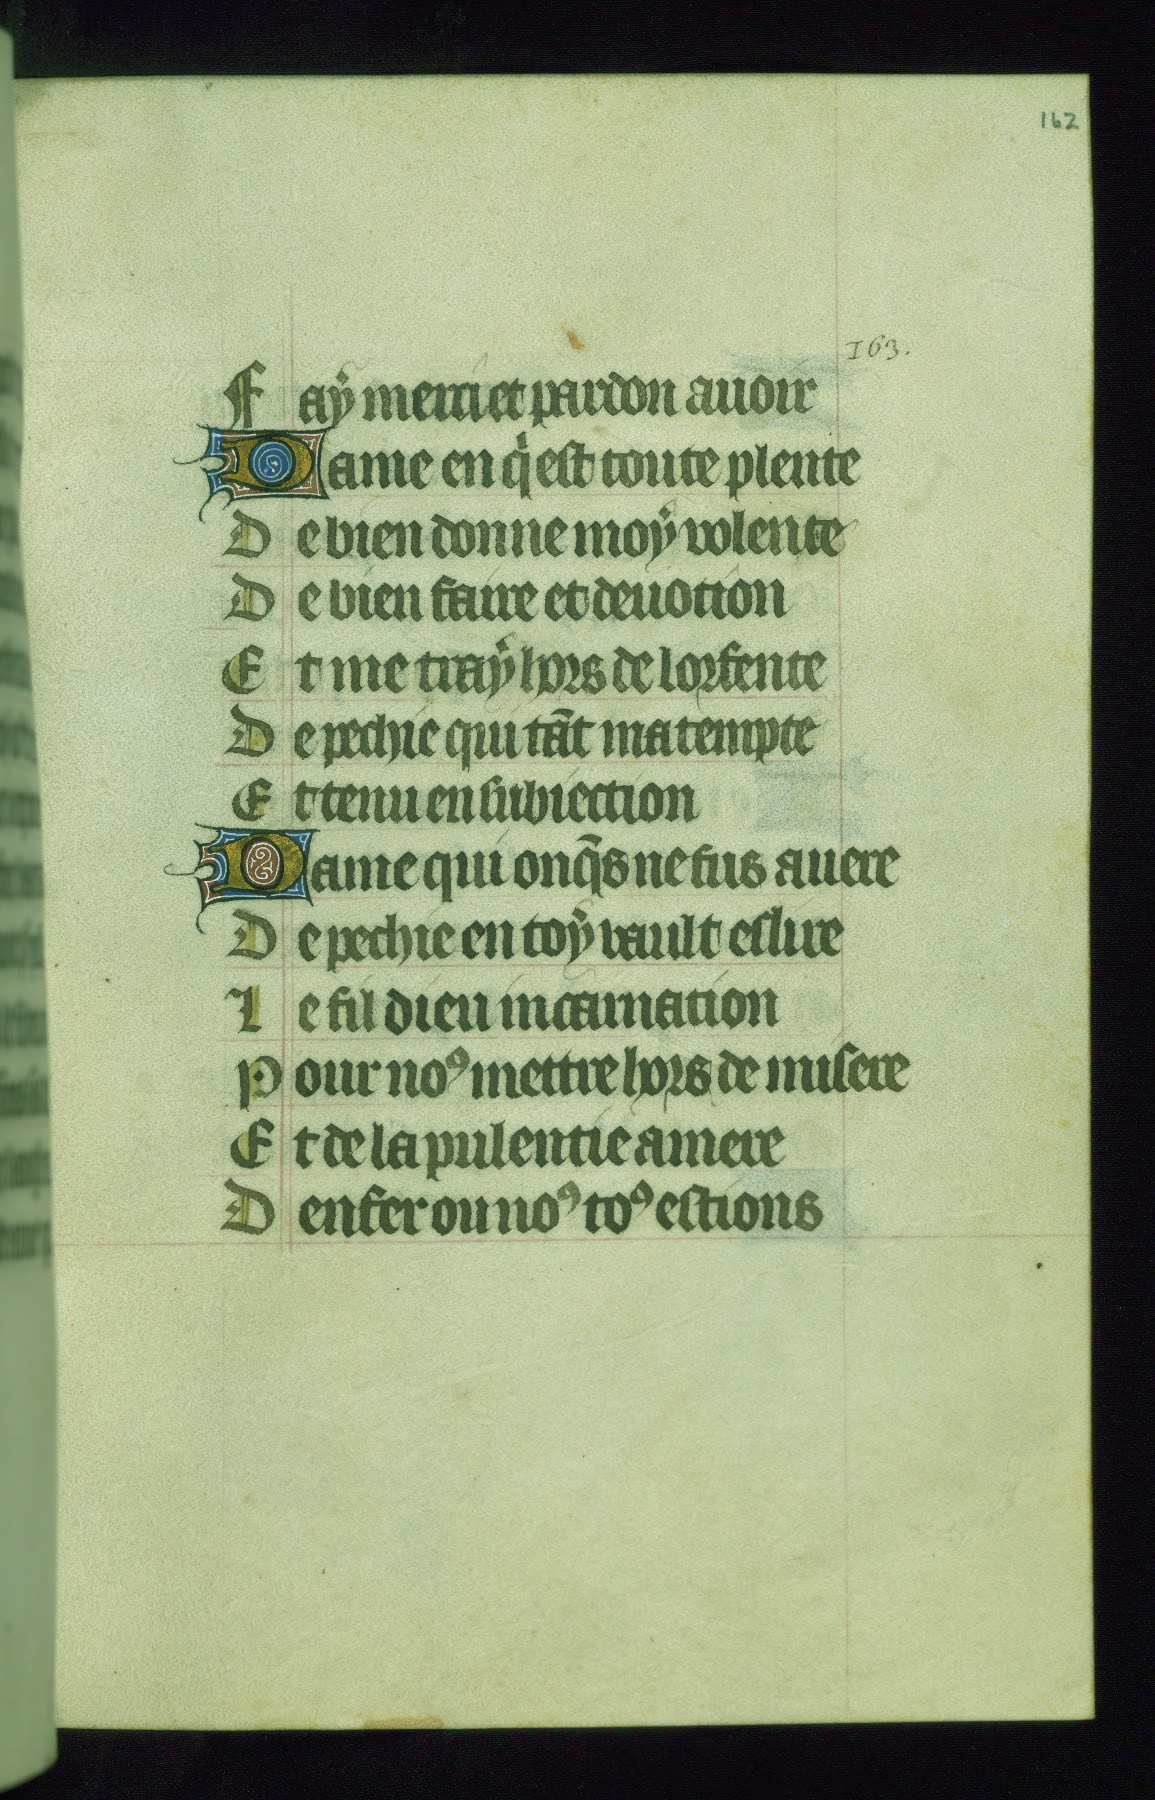 162
163.
Faÿ merci et pardon auoir
Dame en qͥ est toute plente
De bien donne moÿ volente
De bien faire et deuotion
Et me traÿ hors de lorfente
De pechie qui tāt ma tempte
Et tenu en subiection
Dame qui onq̄s ne fus auere
De pechie en toÿ vault eslire
Le fil dieu incarnation
Pour noꝰ mettre hors de misere
Et de la pulentie amere
Denfer ou noꝰ toꝰ estions